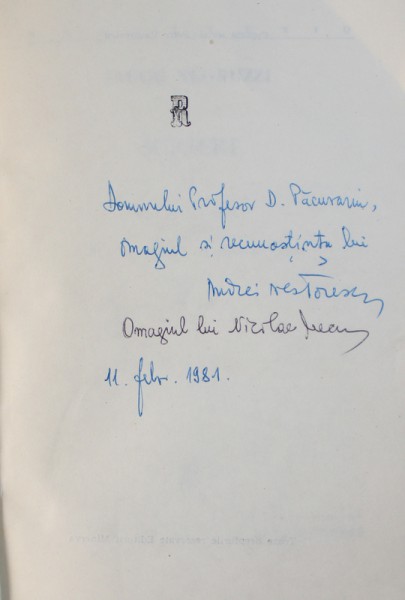 R
Domnului Profesor D. Păcurariu,
omagiul și recunoștința lui
Andrei Nestorescu
Omagiul lui Nicolae
11. febr. 1981.